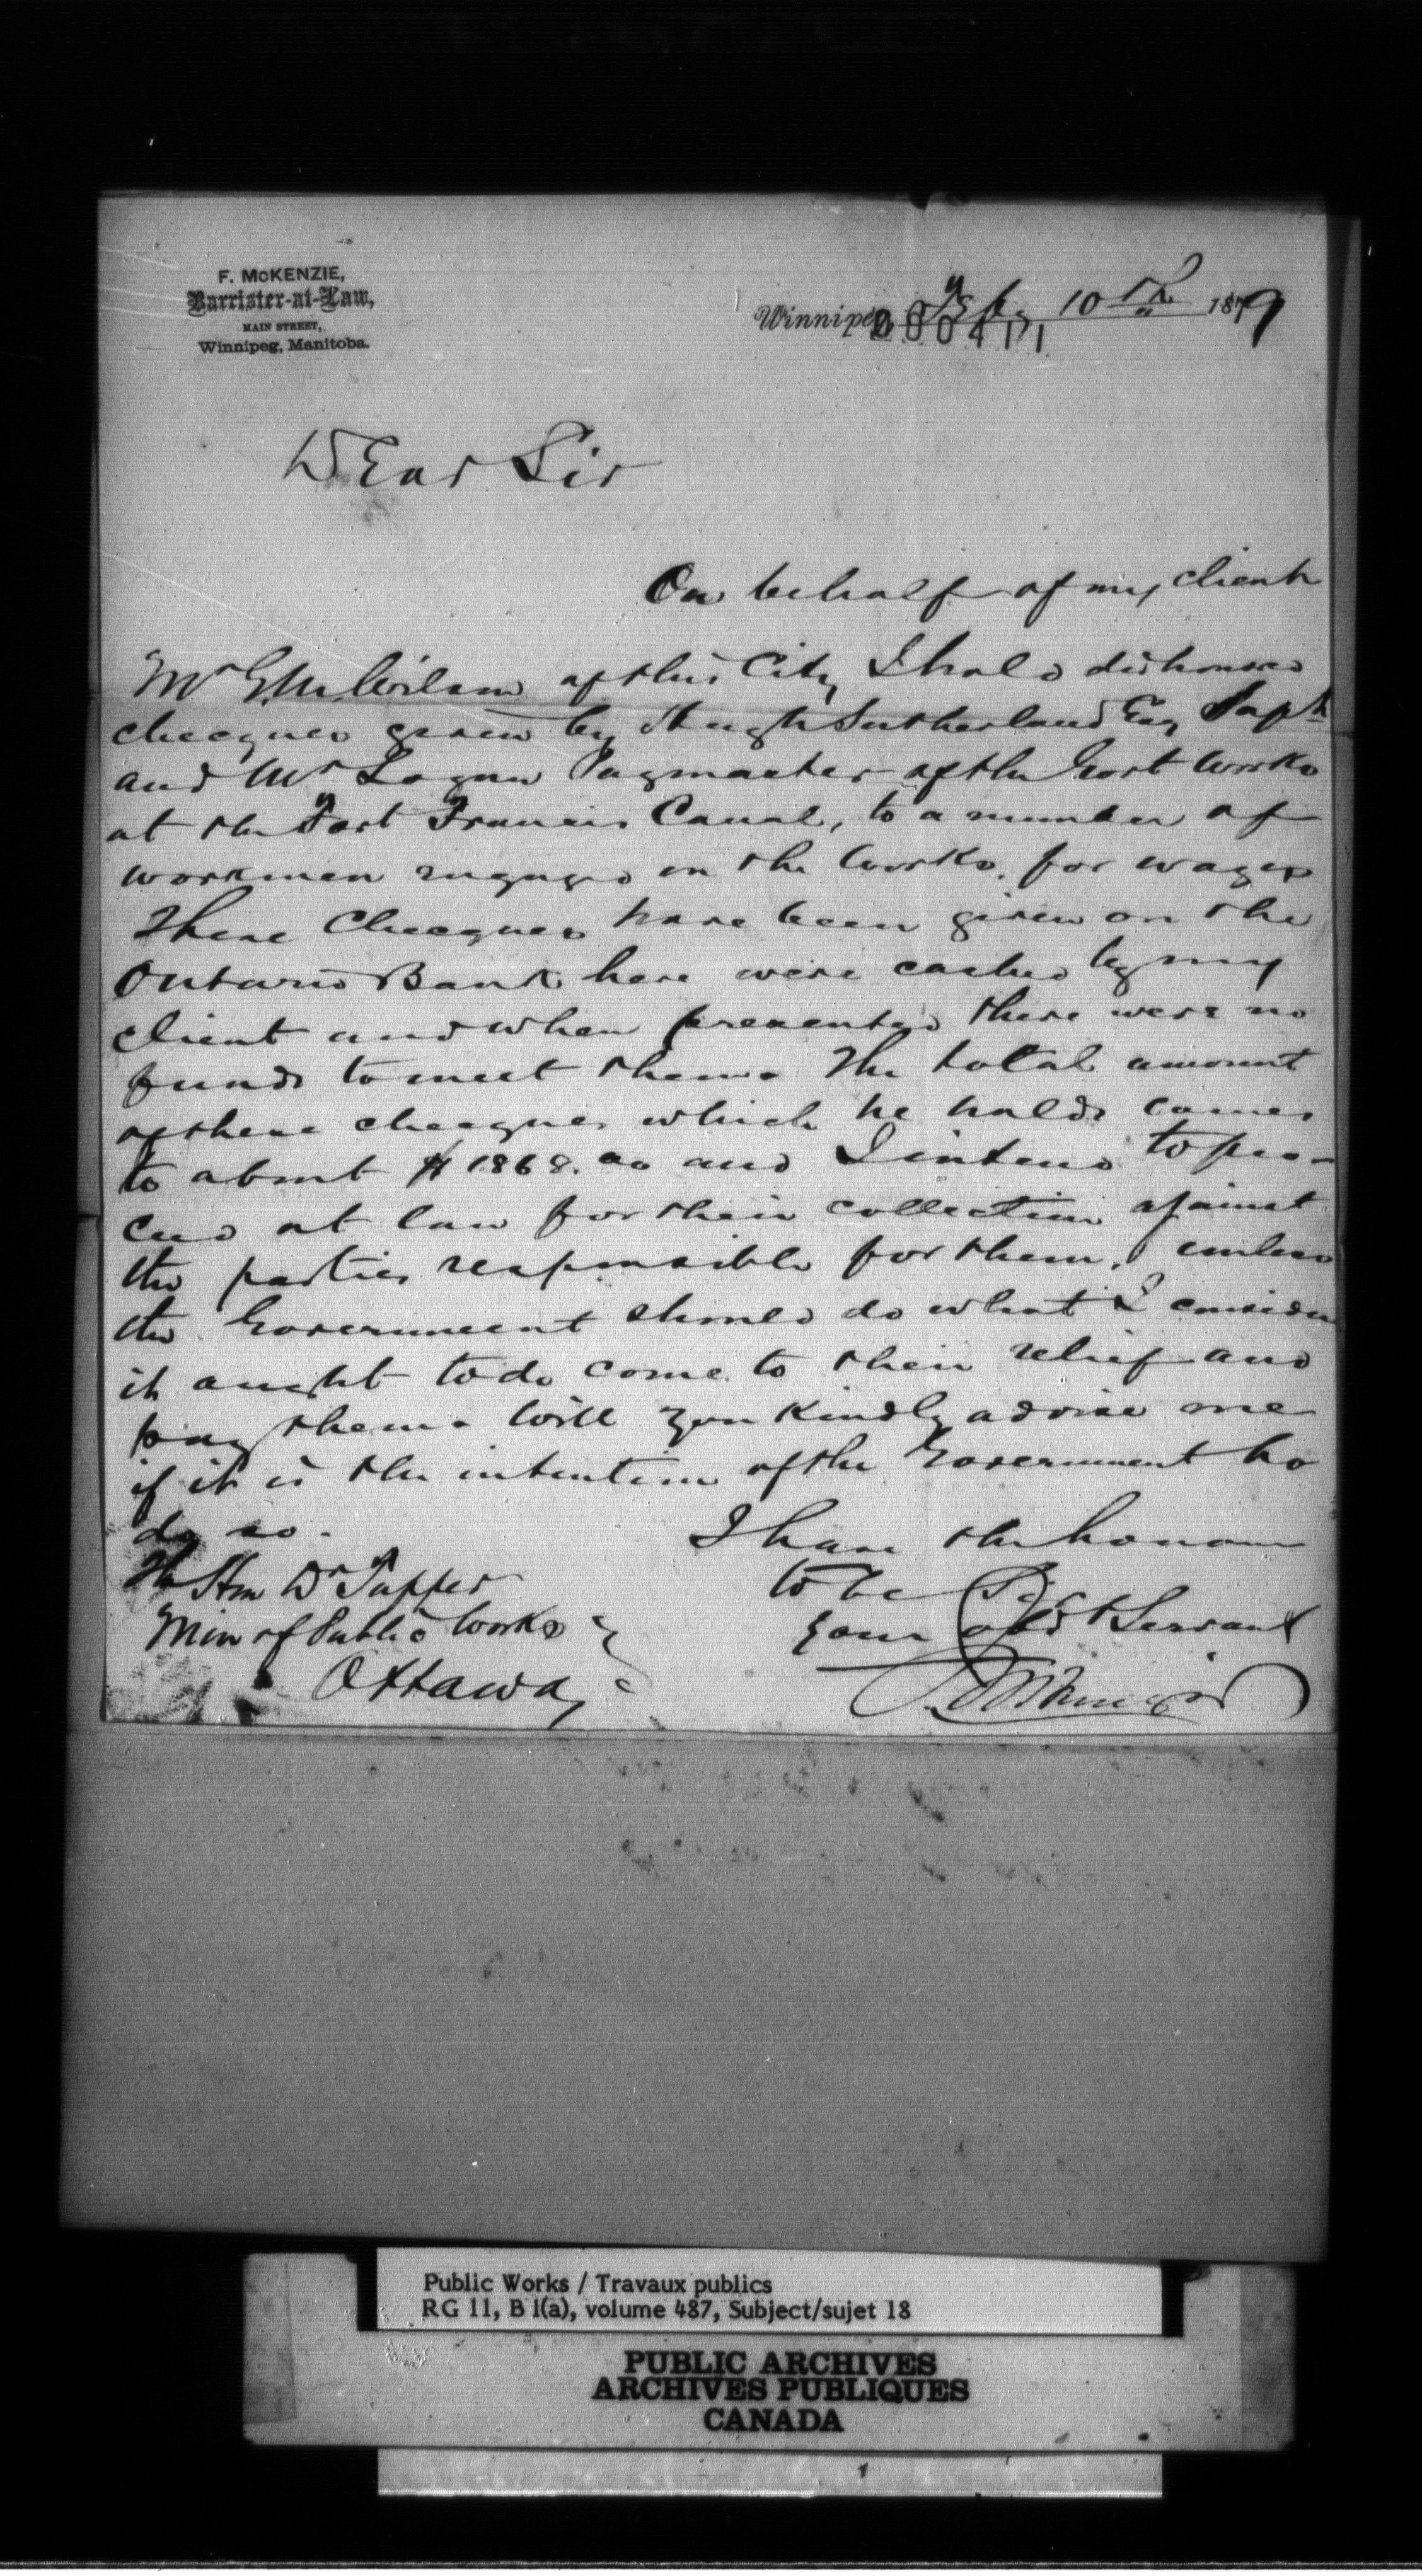 F. McKENZIE,
Barrister-at-Law,
MAIN STREET,
Winnipeg, Manitoba.
Winnipeg, Feby 10th 1879
000411
Dear Sir
On behalf of my client
Mr Wilson of this City I hold dishonored
checques given by Hugh Sutherland Esq Supt
and Mr Logan Paymaster of the Govt Works
at the Fort Francis Canal, to a number of
workmen engaged on the works, for wages
These Checques have been given on the
Ontario Bank here were cashed by my
client and when presented there were no
funds to meet them. The total amount
of these checques which he holds comes
to about $1868.00 and I intend to pro-
ceed at law for their collection against
the parties responsible for them, unless
the Government should do what I consider
it aught to do come to their relief and
pay them. Will you kindly advise me
if it is the intention of the Government to
do so.
I have the honour
to be Sir
your obdt Servant
F. McKenzie
The Hon Dr Tupper
Min of Public Works
Ottawa
Public Works / Travaux publics
RG 11, B 1(a), volume 487, Subject/sujet 18
PUBLIC ARCHIVES
ARCHIVES PUBLIQUES
CANADA